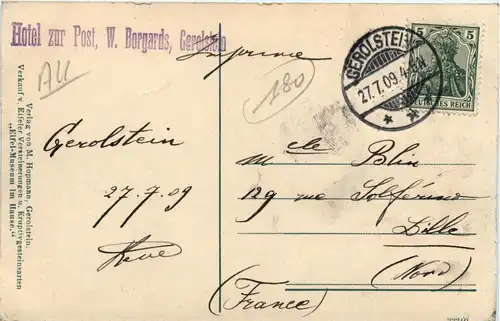 Hotel zur Post, W. Borgards, Gerolstein
AU
Imprimé
180
GEROLSTEIN
27.7.09.4-5N
5 5
DEUTSCHES REICH
Gerolstein
27-7 09
M elle Blin
129 rue Solférino
Lille
(Nord)
(France)
Verlag von M. Hopmann, Gerolstein.
Verkauf v. Eifeler Versteinerungen u. Eruptivgesteinsarten
„Eifel-Museum im Hause.“